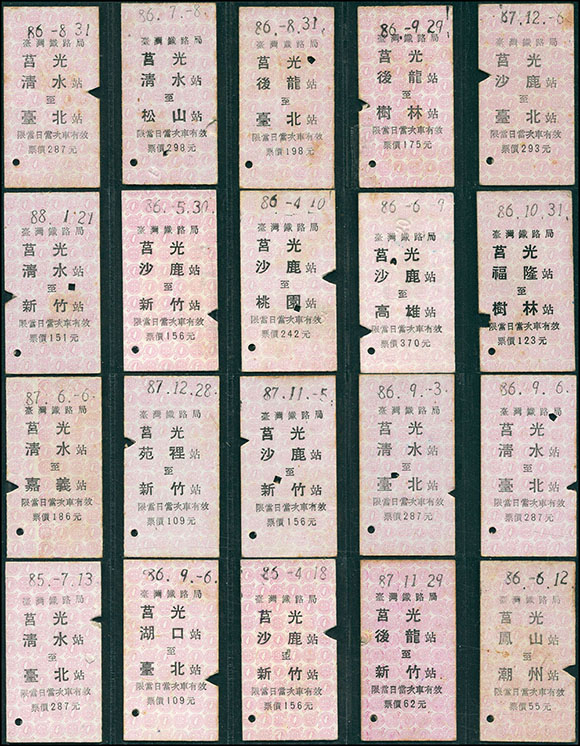 86.-8.31
臺灣鐵路局
莒光
清水站
至
臺北站
限當日當次車有效
票價287元
86.-7.-8.
臺灣鐵路局
莒光
清水站
至
松山站
限當日當次車有效
票價298元
86.-8.31.
臺灣鐵路局
莒光
後龍站
至
臺北站
限當日當次車有效
票價198元
86.-9.29
臺灣鐵路局
莒光
後龍站
至
樹林站
限當日當次車有效
票價175元
87.12.-6
臺灣鐵路局
莒光
沙鹿站
至
臺北站
限當日當次車有效
票價293元
88. 1.21
臺灣鐵路局
莒光
清水站
至
新竹站
限當日當次車有效
票價151元
86.-5.30.
臺灣鐵路局
莒光
沙鹿站
至
新竹站
限當日當次車有效
票價156元
86.-4.10
臺灣鐵路局
莒光
沙鹿站
至
桃園站
限當日當次車有效
票價242元
86.-6.
臺灣鐵路局
莒光
沙鹿站
至
高雄站
限當日當次車有效
票價370元
86.10.31.
臺灣鐵路局
莒光
福隆站
至
樹林站
限當日當次車有效
票價123元
87.6.-6
臺灣鐵路局
莒光
清水站
至
嘉義站
限當日當次車有效
票價186元
87.12.28.
臺灣鐵路局
莒光
苑裡站
至
新竹站
限當日當次車有效
票價109元
87.11.-5
臺灣鐵路局
莒光
沙鹿站
至
新竹站
限當日當次車有效
票價156元
86.9.-3.
臺灣鐵路局
莒光
清水站
至
臺北站
限當日當次車有效
票價287元
86.9.6.
臺灣鐵路局
莒光
清水站
至
臺北站
限當日當次車有效
票價287元
85.-7.13
臺灣鐵路局
莒光
清水站
至
臺北站
限當日當次車有效
票價287元
86.9.-6.
臺灣鐵路局
莒光
湖口站
至
臺北站
限當日當次車有效
票價109元
86-4.18
臺灣鐵路局
莒光
沙鹿站
至
新竹站
限當日當次車有效
票價156元
87.11.29
臺灣鐵路局
莒光
後龍站
至
新竹站
限當日當次車有效
票價62元
86.-6.12
臺灣鐵路局
莒光
鳳山站
至
潮州站
限當日當次車有效
票價55元